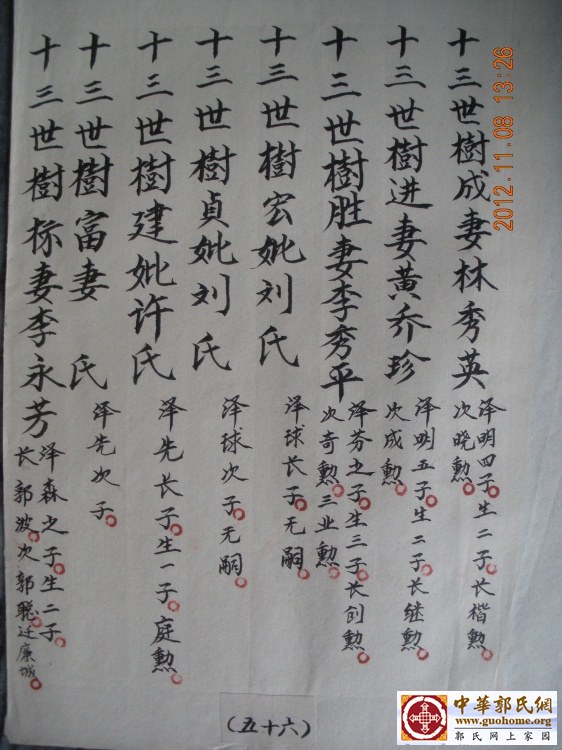 十三世樹成妻林秀英
泽明四子生二子长楷勲
次晓勲
十三世樹进妻黄乔珍
泽明五子生二子长继勲
次成勲
十三世樹胜妻李秀平
泽芬之子生三子长创勲
次奇勲三业勲
十三世樹宏妣刘氏
泽球长子无嗣
十三世樹贞妣刘氏
泽球次子无嗣
十三世樹建妣许氏
泽先长子生一子庭勲
十三世樹富妻 氏
泽先次子
十三世樹标妻李永芳
泽森之子生二子
长郭波次郭聪迁廉城
(五十六)
2012.11.08 13:26
中華郭氏網
www.guohome.org
郭氏网上家园